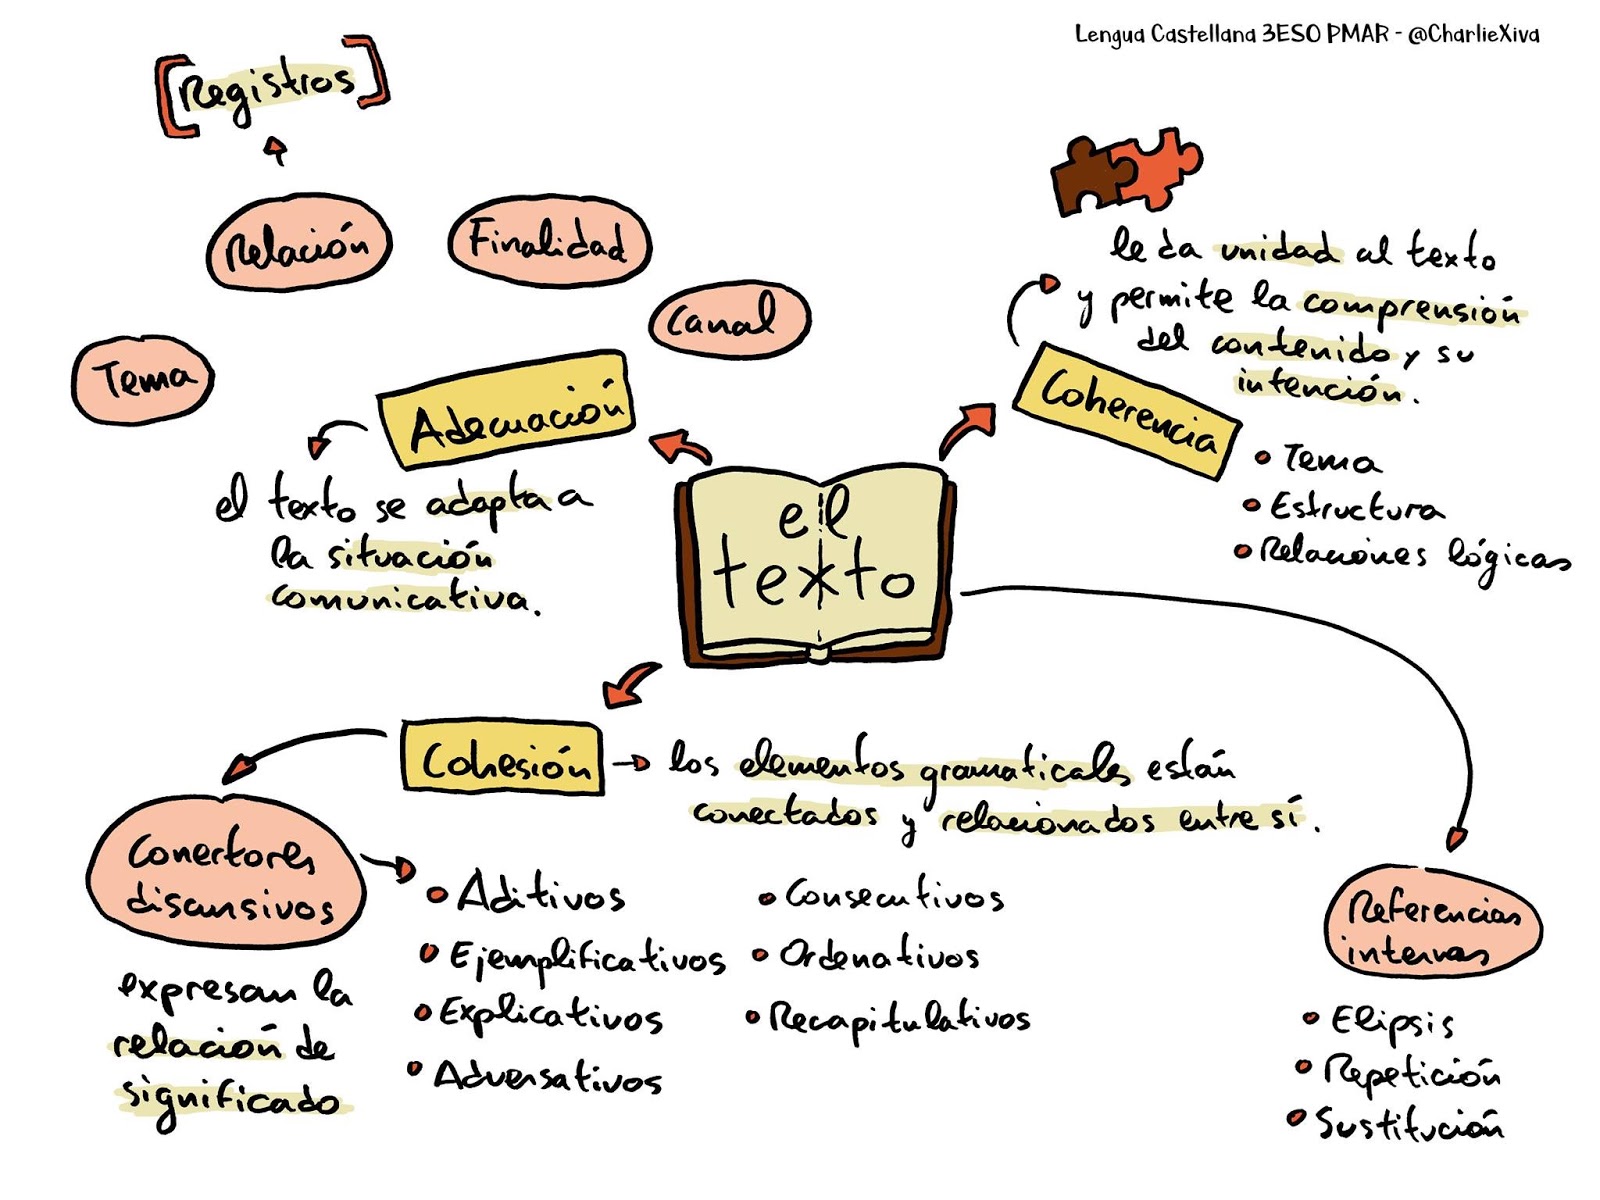 Lengua Castellana 3ESO PMAR - @CharlieXiva
[Registros]
Relación
Finalidad
Canal
Tema
Adecuación
el texto se adapta a
la situación
comunicativa.
le da unidad al texto
y permite la comprensión
del contenido y su
intención.
Coherencia
• Tema
• Estructura
• Relaciones lógicas
el
texto
Cohesión
los elementos gramaticales están
conectados y relacionados entre sí.
Conectores
discursivos
expresan la
relación de
significado
• Aditivos
• Ejemplificativos
• Explicativos
• Adversativos
• Consecutivos
• Ordenativos
• Recapitulativos
Referencias
internas
• Elipsis
• Repetición
• Sustitución